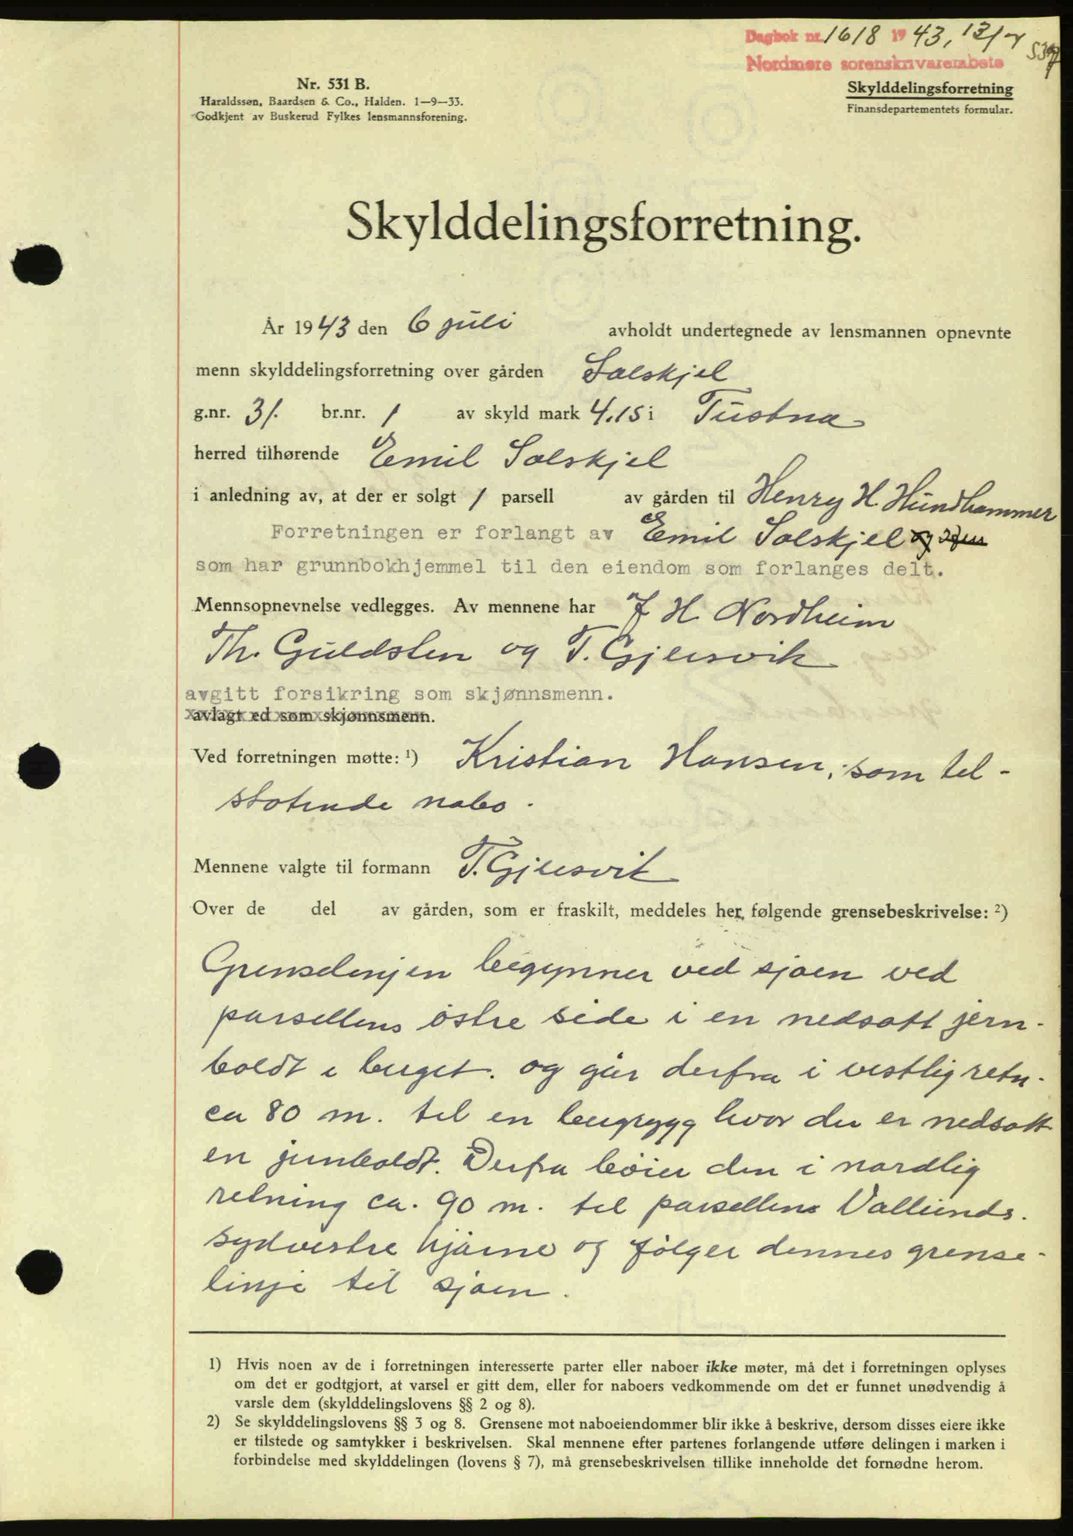 Dagbok nr. 1618 1943, 13/7
Nordmøre sorenskrivarembete
Nr. 531 B.
Haraldssen, Baardsen & Co., Halden. 1—9—33.
Godkjent av Buskerud Fylkes lensmannsforening.
Skylddelingsforretning
Finansdepartementets formular.
Skylddelingsforretning.
År 1943 den 6 juli avholdt undertegnede av lensmannen opnevnte
menn skylddelingsforretning over gården Solskjel
g.nr. 31. br.nr. 1 av skyld mark 4.15 i Tustna
herred tilhørende Emil Solskjel
i anledning av, at der er solgt 1 parsell av gården til Henry H. Hundhammer
Forretningen er forlangt av Emil Solskjel og
som har grunnbokhjemmel til den eiendom som forlanges delt.
Mennsopnevnelse vedlegges. Av mennene har J H. Nordheim
Th. Guldsten og T. Gjelsvik
avgitt forsikring som skjønnsmenn.
avlagt ed som skjønnsmenn.
Ved forretningen møtte: ¹) Kristian Hansen, som til-
støtende nabo.
Mennene valgte til formann T. Gjelsvik
Over de del av gården, som er fraskilt, meddeles her følgende grensebeskrivelse: ²)
Grenselinjen begynner ved sjøen ved
parsellens østre side i en nedsatt jern-
boldt i berget. og går derfra i vestlig retn.
ca 80 m. til en bergrygg hvor der er nedsatt
en jernboldt. Derfra bøier den i nordlig
retning ca. 90 m. til parsellens Vallunds.
sydvestre hjørne og følger dennes grense-
linje til sjøen.
1) Hvis noen av de i forretningen interesserte parter eller naboer ikke møter, må det i forretningen oplyses
om det er godtgjort, at varsel er gitt dem, eller for naboers vedkommende om det er funnet unødvendig å
varsle dem (skylddelingslovens §§ 2 og 8).
2) Se skylddelingslovens §§ 3 og 8. Grensene mot naboeiendommer blir ikke å beskrive, dersom disses eiere ikke
er tilstede og samtykker i beskrivelsen. Skal mennene efter partenes forlangende utføre delingen i marken i
forbindelse med skylddelingen (lovens § 7), må grensebeskrivelsen tillike inneholde det fornødne herom.